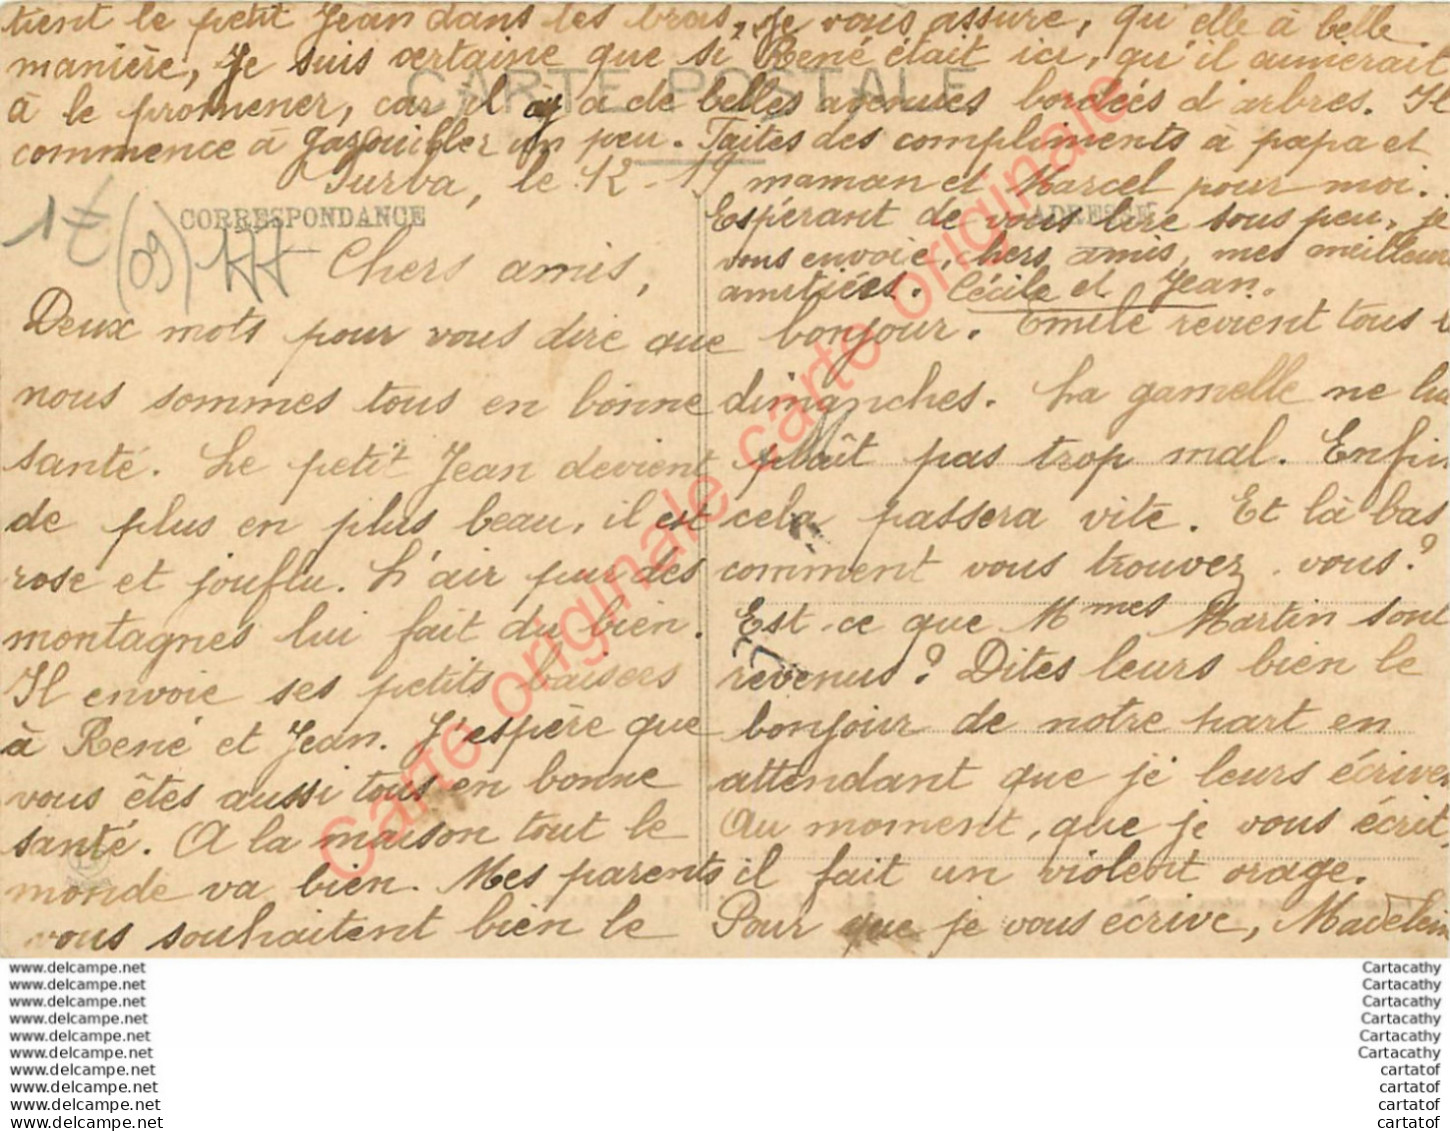 tient le petit Jean dans les bras, je vous assure, qu'elle à belle
manière, Je suis certaine que si René était ici, qu'il aimerait
à le promener, car il y a de belles avenues bordées d'arbres. Il
commence à gazouiller un peu. Faites des compliments à papa et
maman et Marcel pour moi.
Espérant de vous lire sous peu, je
vous envoie, chers amis, mes meilleur
amitiées. Cécile et Jean.
CARTE POSTALE
CORRESPONDANCE
ADRESSE
1€ (09)
Surba, le 12 -
Chers amis,
Deux mots pour vous dire que
nous sommes tous en bonne
santé. Le petit Jean devient
de plus en plus beau, il est
rose et jouflu. L'air pur des
montagnes lui fait du bien.
Il envoie ses petits baisers
à René et Jean. J'espère que
vous êtes aussi tous en bonne
santé. A la maison tout le
monde va bien. Mes parents
vous souhaitent bien le
bonjour. Emile revient tous l
dimanches. La gamelle ne lui
plaît pas trop mal. Enfin
cela passera vite. Et là bas
comment vous trouvez vous?
Est-ce que Mmes Martin sont
revenus? Dites leurs bien le
bonjour de notre part en
attendant que je leurs écrive.
Au moment, que je vous écrit,
il fait un violent orage.
Pour que je vous écrive, Madelein
Carte originale carte originale
www.delcampe.net
www.delcampe.net
www.delcampe.net
www.delcampe.net
www.delcampe.net
www.delcampe.net
www.delcampe.net
www.delcampe.net
www.delcampe.net
www.delcampe.net
Cartacathy
Cartacathy
Cartacathy
Cartacathy
Cartacathy
Cartacathy
cartatof
cartatof
cartatof
cartatof